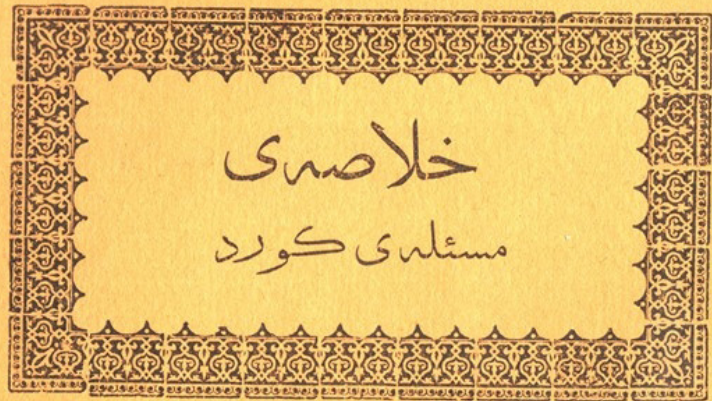 خلاصەی
مسئلەی کورد